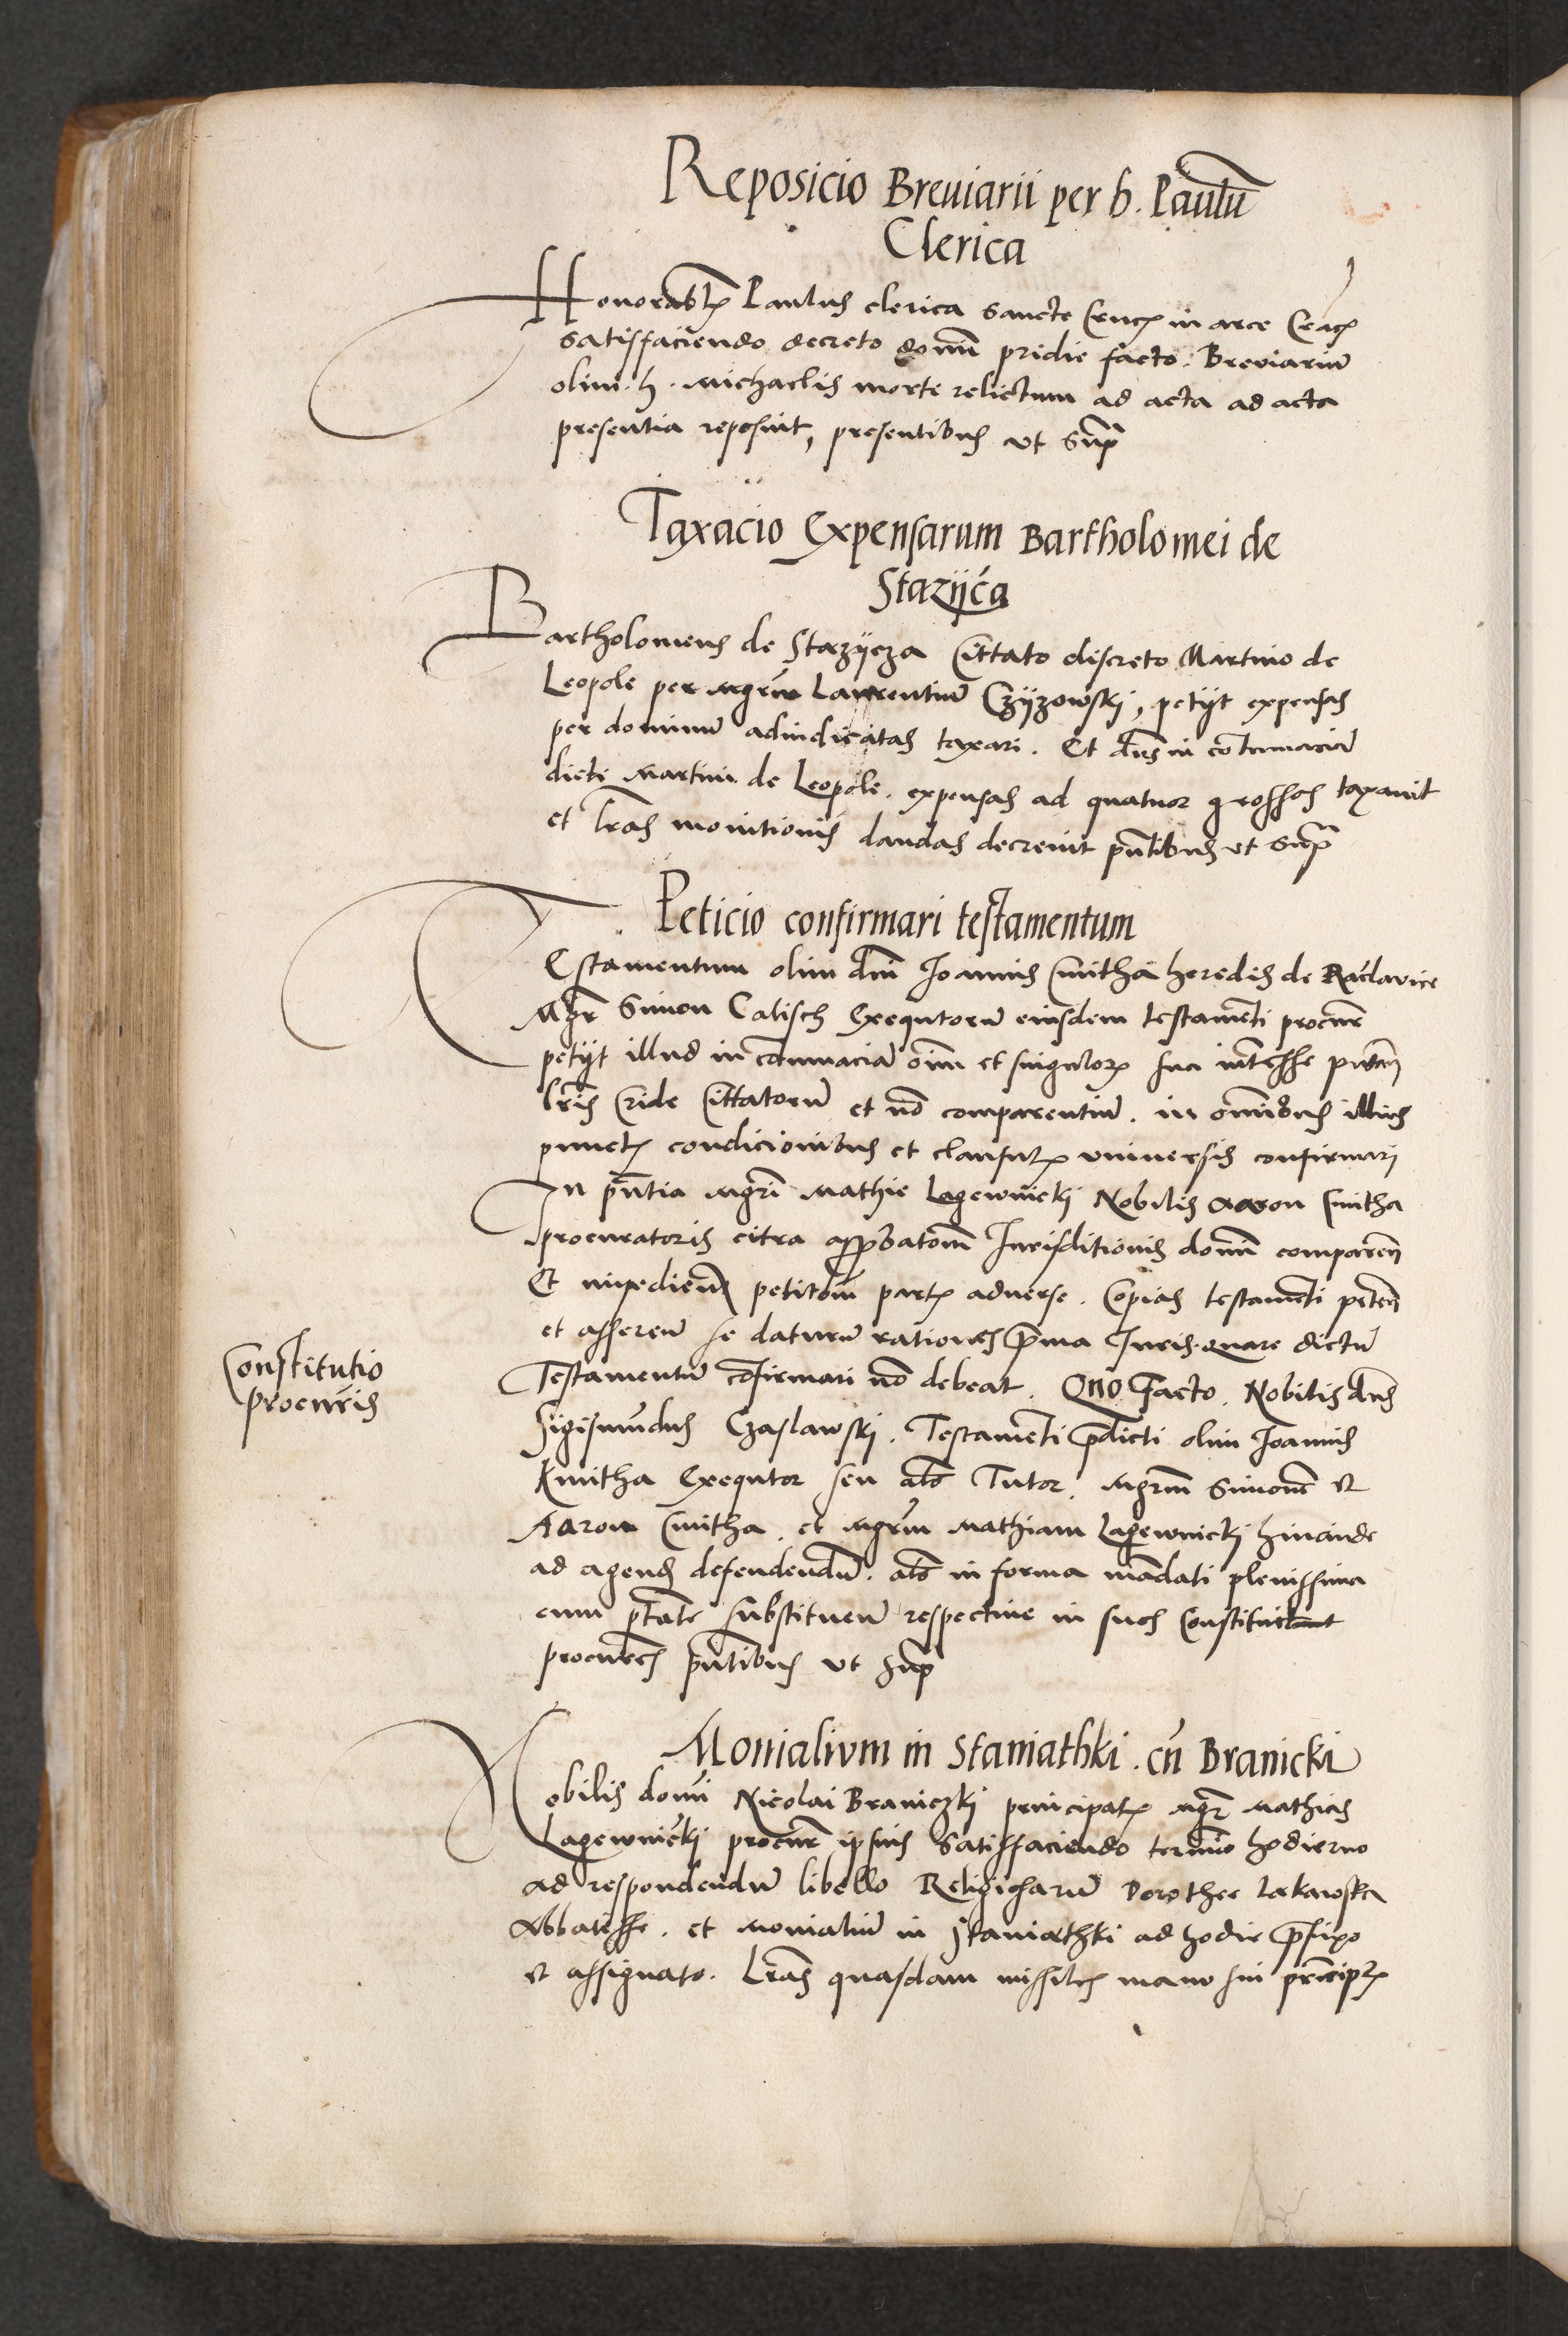 Reposicio Breuiarii per h. Paulū
Clerica
Honorabil Paulus clerica sancte Crucis in arce Crac
satisfaciendo decreto domī pridie facto. Breviariū
olim. h. Michaelis morte relictum ad acta ad acta
presentia reposuit, presentibus vt supra
Taxacio Expensarum Bartholomei de
Stazijća
Bartholomeus de Stazijcza Cittato discreto Martino de
Leopole per mgrm Laurentiū Czijzowskj, petijt expensas
per dominū adiudicatas taxari. Et dns in cōtumaciā
dicti Martini de Leopole. expensas ad quatuor grossos taxauit
et lras monitionis dandas decreuit pntibus vt supra
Peticio confirmari testamentum
TEstamentum olim dni Joannis Cmitha heredis de Raclavice
Mgr Simon Calisch Exequtorū eiusdem testamēti procur
petijt illud in cōtumaciā oīm et singulor sua intesse putan
lris Cride Cittatorū et nō comparentiū. in omibus illius
punctis condicionibus et clausulis vniuersis confirmarj
In pntia mgri Mathie Lagewnickj Nobilis Aaron Cmitha
procuratoris citra approbatiom Jurisditionis domī comparen
Et impedien petitiom partis aduerse. Copias testamēti peten
et asseren se daturū rationes prima Juris. quare dictū
Testamentū cōfirmari nō debeat. QUO facto. Nobilis dns
Sigismūdus Czaslawskj. Testamēti pdicti olim Joannis
Kmitha Exequtor seu als Tutor. mgrm Simonē et
Aaron Cmitha. et mgrm Mathiam Lagewnickj hincinde
ad agend defendendū. als in forma mādati plenissima
cum ptate substituen respectiue in suos Constituit
procures pntibus vt supra
Constitutio
procuris
Monialivm in Staniathki. cū Branicki
Nobilis domī Nicolai Braniczkj principalis mgr Mathias
Lagewnićkj procur ipsius Satisfaciendo termino hodierno
ad respondendū libello Religiosarū Dorothee
Abbatisse. et monialiū in Staniathkj ad hodie pfixo
et assignato. Lras quasdam missiles manu sui principlis